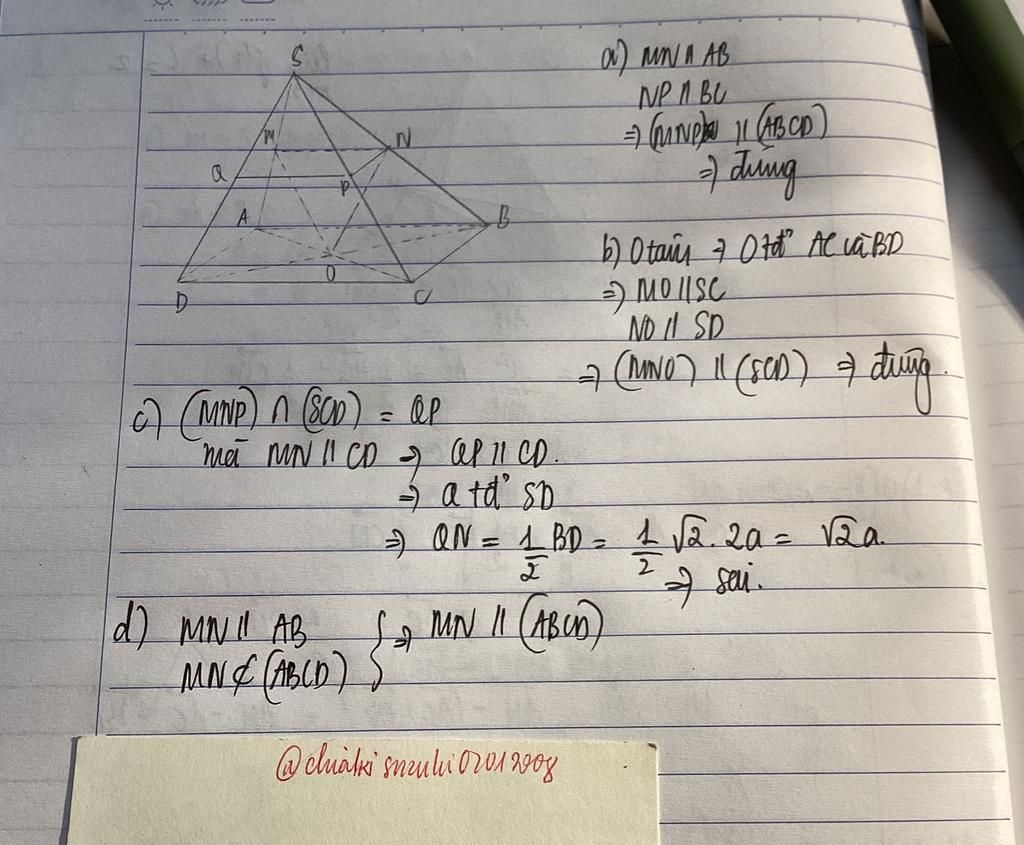 S
M
N
Q
P
A
B
O
D
C
a) MN // AB
NP // BC
⇒ (MNP) // (ABCD)
⇒ đúng
b) O tâm ⇒ O tđ' AC và BD
⇒ MO // SC
NO // SD
⇒ (MNO) // (SCD) ⇒ đúng.
c) (MNP) ∩ (SCD) = QP
mà MN // CD ⇒ QP // CD.
⇒ Q tđ' SD
⇒ QN = 1/2 BD = 1/2 √2. 2a = √2a.
⇒ sai.
d) MN // AB
MN ⊄ (ABCD) } ⇒ MN // (ABCD)
@chiaki suzuki02012008